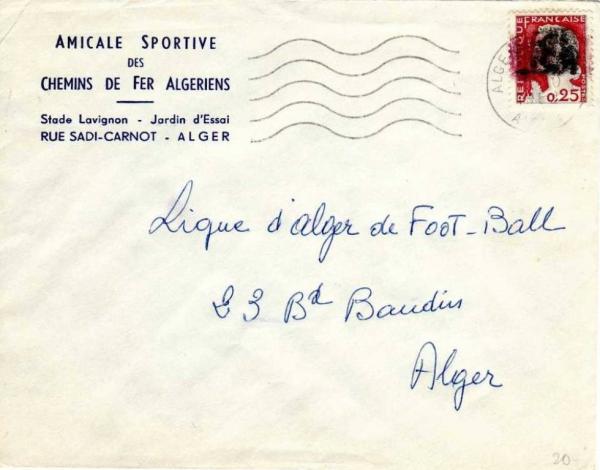 AMICALE SPORTIVE
DES
CHEMINS DE FER ALGERIENS
Stade Lavignon - Jardin d'Essai
RUE SADI-CARNOT - ALGER
REPUBLIQUE FRANCAISE
0,25
ALGER
Ligue d'alger de Foot-Ball
23 Bd Baudin
Alger
20-